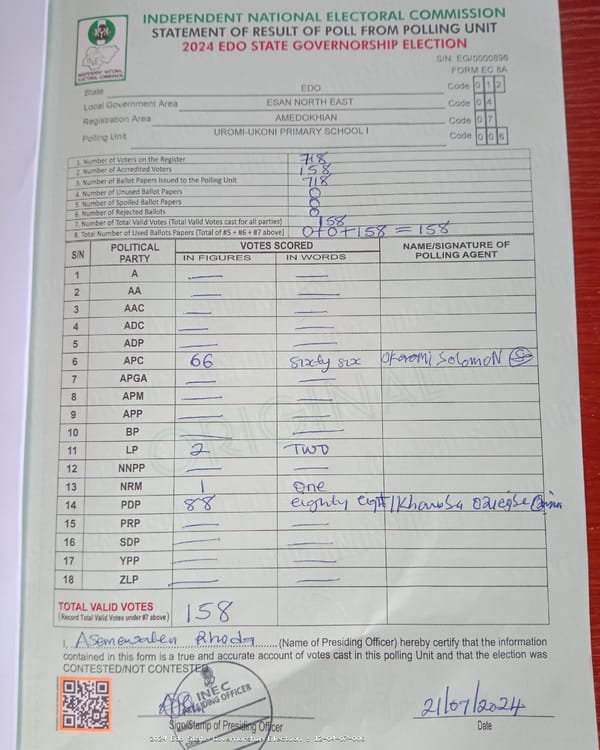 INDEPENDENT NATIONAL ELECTORAL COMMISSION
STATEMENT OF RESULT OF POLL FROM POLLING UNIT
2024 EDO STATE GOVERNORSHIP ELECTION
INEC
INDEPENDENT NATIONAL ELECTORAL COMMISSION
S/N: EG/0000896
FORM EC 8A
State EDO Code 0 1 2
Local Government Area ESAN NORTH EAST Code 0 4
Registration Area AMEDOKHIAN Code 0 7
Polling Unit UROMI-UKONI PRIMARY SCHOOL I Code 0 0 6
1. Number of Voters on the Register 718
2. Number of Accredited Voters 158
3. Number of Ballot Papers Issued to the Polling Unit 718
4. Number of Unused Ballot Papers 0
5. Number of Spoiled Ballot Papers 0
6. Number of Rejected Ballots 0
7. Number of Total Valid Votes (Total Valid Votes cast for all parties) 158
8. Total Number of Used Ballots Papers (Total of #5 + #6 + #7 above) 0+0+158 = 158
S/N POLITICAL PARTY VOTES SCORED NAME/SIGNATURE OF POLLING AGENT
IN FIGURES IN WORDS
1 A — —
2 AA — —
3 AAC — —
4 ADC — —
5 ADP — —
6 APC 66 Sixty six Okoromi Solomon
7 APGA — —
8 APM — —
9 APP — —
10 BP — —
11 LP 2 TWO
12 NNPP — —
13 NRM 1 One
14 PDP 88 eighty eight
15 PRP — —
16 SDP — —
17 YPP — —
18 ZLP — —
ORIGINAL
TOTAL VALID VOTES 158
(Record Total Valid Votes under #7 above)
I, Rhoda (Name of Presiding Officer) hereby certify that the information
contained in this form is a true and accurate account of votes cast in this polling Unit and that the election was
CONTESTED/NOT CONTESTED
INEC
PRESIDING OFFICER
21/07/2024
Sign/Stamp of Presiding Officer Date
2024 Edo State Governorship Election : 12-04-07-006